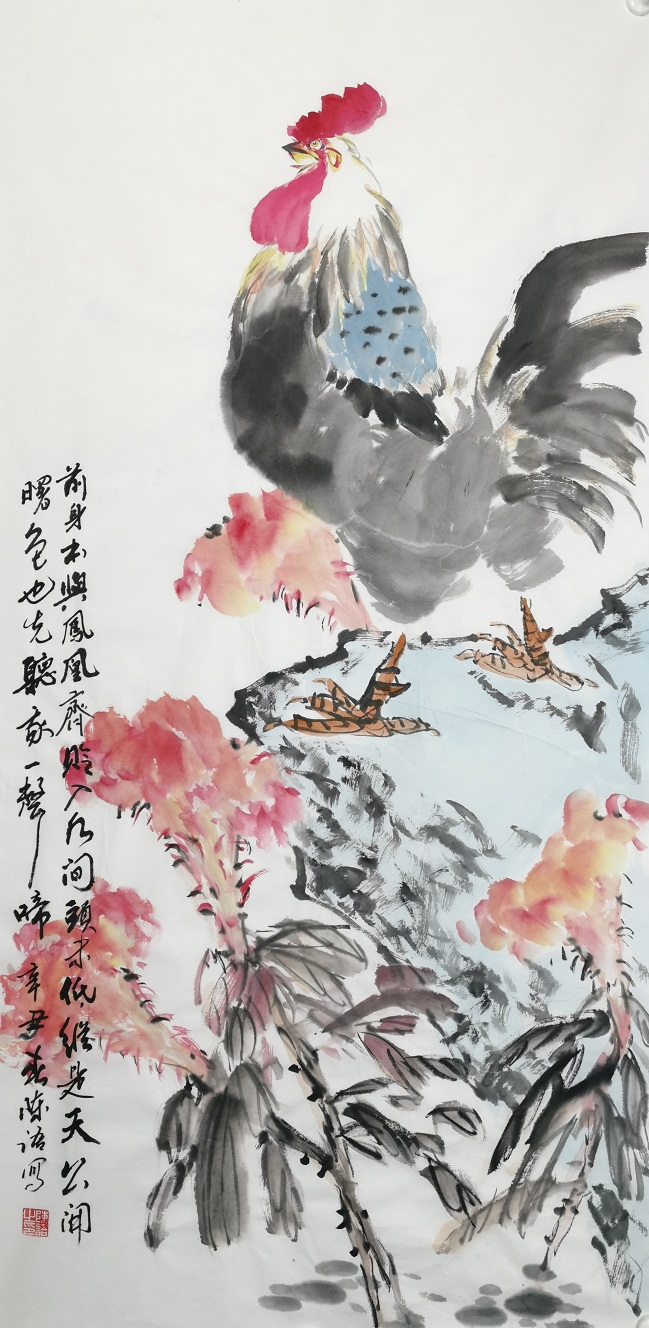 前身本與鳳凰齊贬入人間頭未低縱是天公開
曙色也先聽我一聲啼 辛丑春陈语寫